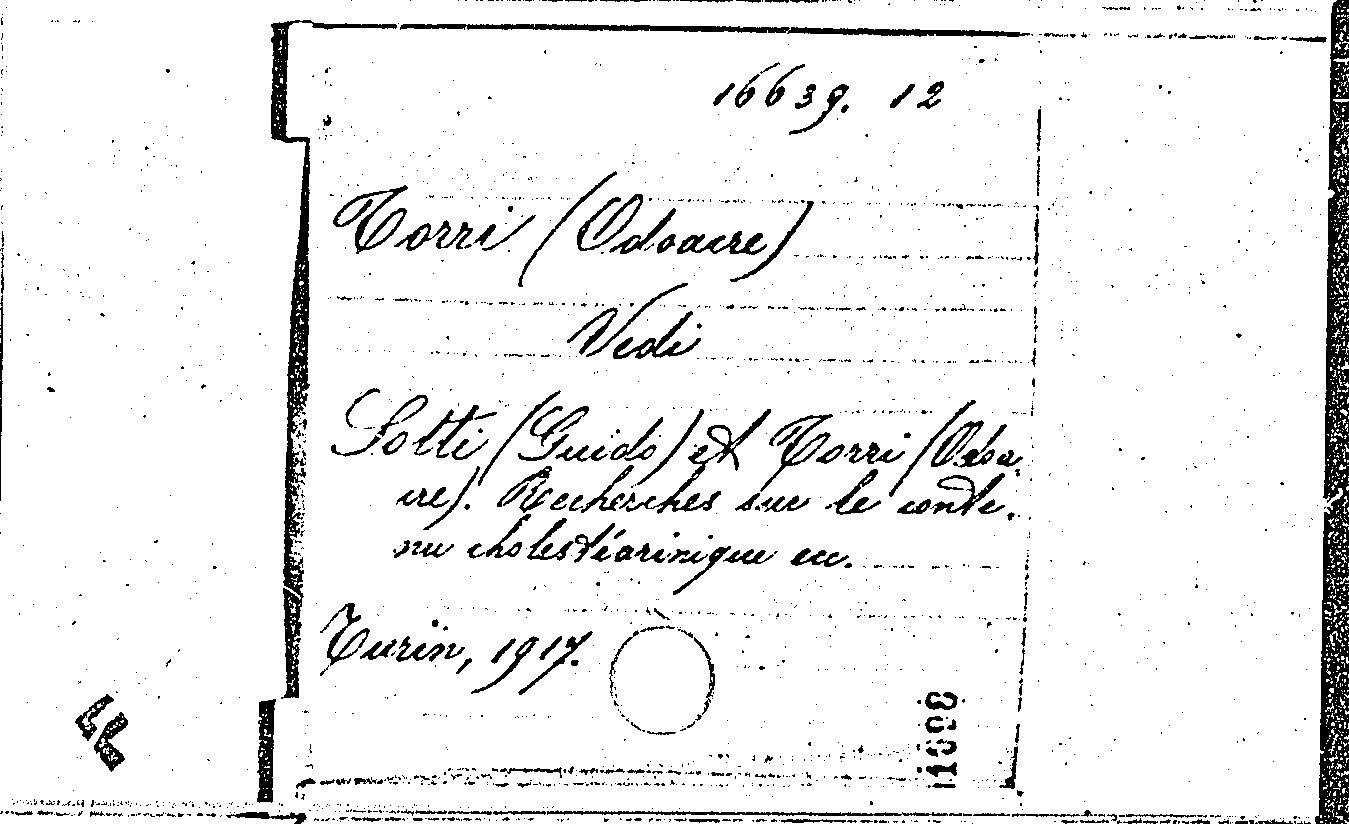 16639. 12
Torri (Odoacre)
Vedi
Sotti (Guido) et Torri (Odoa-
cre). Recherches sur le conte-
nu cholestéarinique ecc.
Turin, 1917.